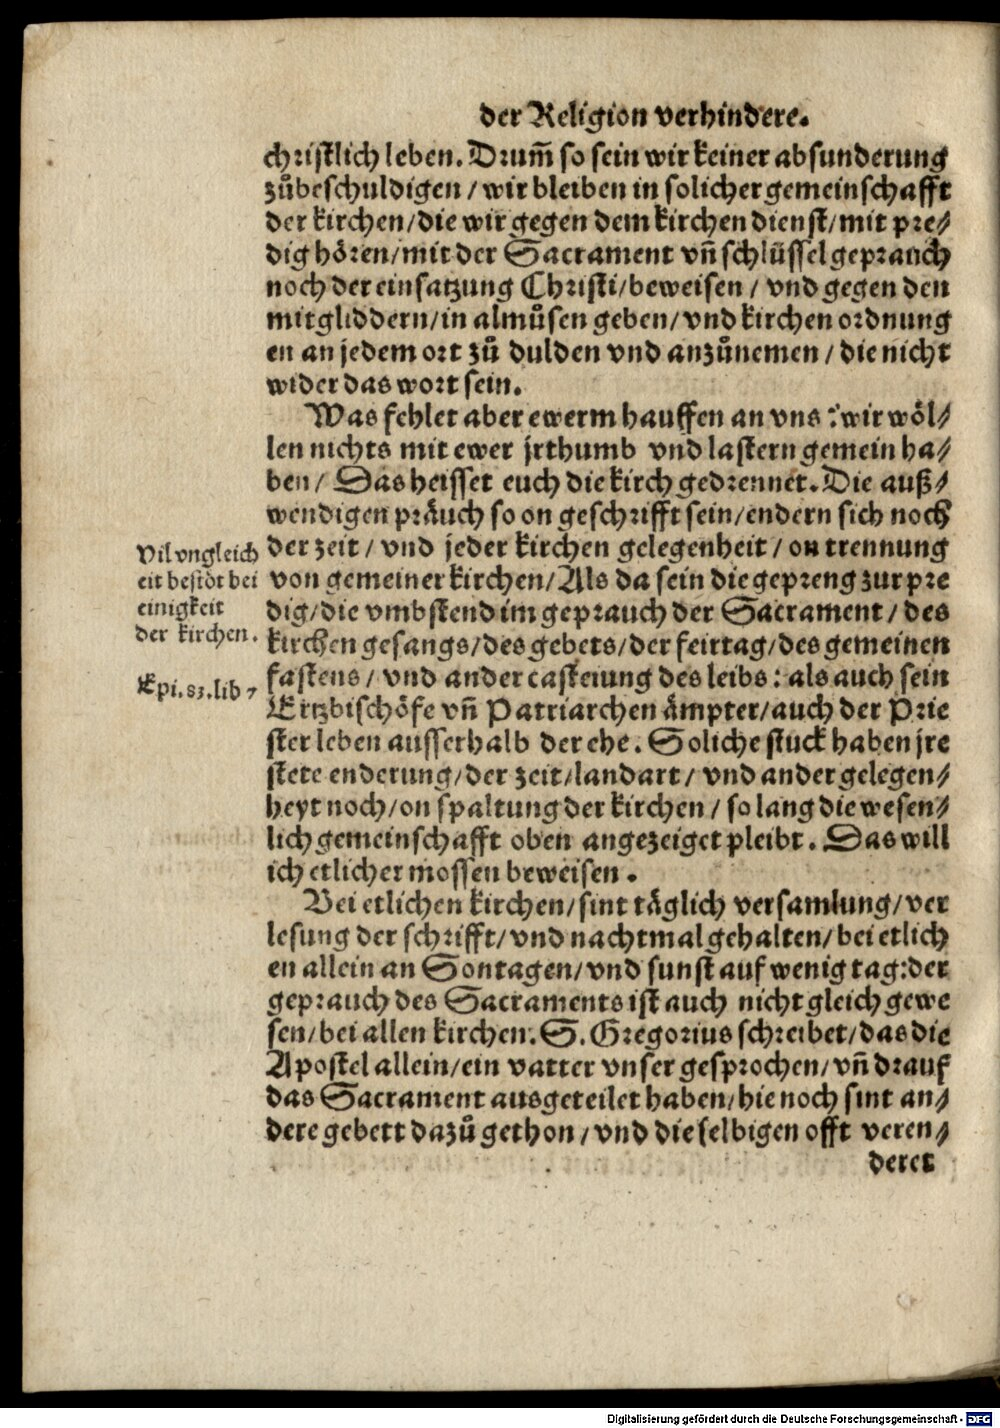 der Religion verhindere.
christlich leben. Drum̃ so sein wir keiner absunderung
zůbeschuldigen / wir bleiben in solicher gemeinschafft
der kirchen/die wir gegen dem kirchen dienst/mit pre⸗
dig hören/mit der Sacrament vñ schlüssel geprauch
noch der einsatzung Christi/beweisen / vnd gegen den
mitgliddern/in almůsen geben/vnd kirchen ordnung
en an jedem ort zů dulden vnd anzůnemen / die nicht
wider das wort sein.
Was fehlet aber ewerm hauffen an vns: wir wöl⸗
len nichts mit ewer jrthumb vnd lastern gemein ha⸗
ben/ Das heisset euch die kirch gedrennet. Die auß⸗
wendigen präuch so on geschrifft sein/endern sich noch
der zeit / vnd jeder kirchen gelegenheit / on trennung
von gemeiner kirchen/Als da sein die gepreng zur pre
dig/die vmbstend im geprauch der Sacrament / des
kirchen gesangs/des gebets/der feirtag/des gemeinen
fastens/ vnd ander casteiung des leibs: als auch sein
Ertzbischöfe vñ Patriarchen ämpter/auch der Prie
ster leben ausserhalb der ehe. Soliche stuck haben jre
stete enderung/der zeit/landart/ vnd ander gelegen⸗
heyt noch/on spaltung der kirchen / so lang die wesen⸗
lich gemeinschafft oben angezeiget pleibt. Das will
ich etlicher mossen beweisen.
Vil vngleich
eit bestöt bei
einigkeit
der kirchen.
Epi. 83. lib 7
Bei etlichen kirchen/sint täglich versamlung/ver
lesung der schrifft/vnd nachtmal gehalten/bei etlich
en allein an Sontagen/vnd sunst auf wenig tag:der
geprauch des Sacraments ist auch nicht gleich gewe
sen/bei allen kirchen. S. Gregorius schreibet/das die
Apostel allein/ein vatter vnser gesprochen/vñ drauf
das Sacrament ausgeteilet haben/hie noch sint an⸗
dere gebett dazů gethon/vnd dieselbigen offt veren⸗
deret
Digitalisierung gefördert durch die Deutsche Forschungsgemeinschaft - DFG